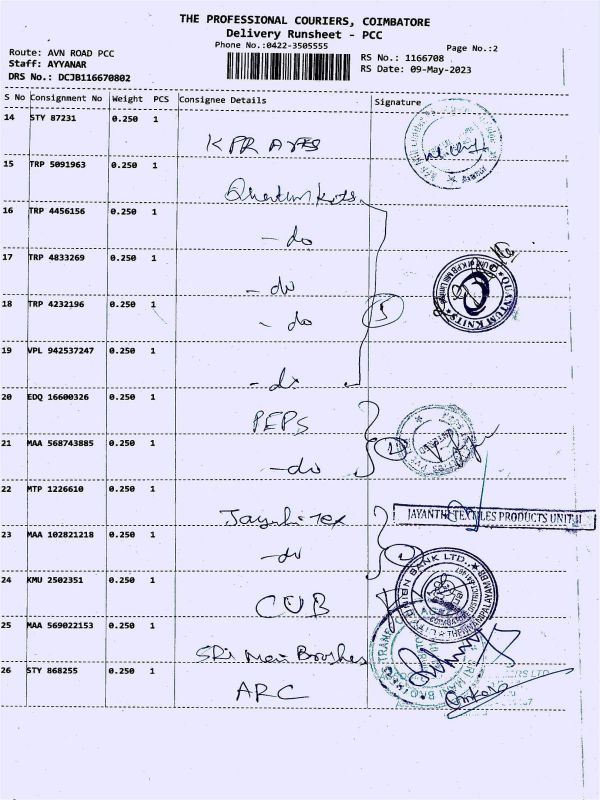 THE PROFESSIONAL COURIERS, COIMBATORE
Delivery Runsheet - PCC
Phone No.:0422-3505555
Page No.:2
Route: AVN ROAD PCC
Staff: AYYANAR
DRS No.: DCJB116670802
RS No.: 1166708
RS Date: 09-May-2023
S No Consignment No Weight PCS Consignee Details Signature
14 STY 87231 0.250 1
KPR
15 TRP 5091963 0.250 1
Quantum Knits
16 TRP 4456156 0.250 1
- do
17 TRP 4833269 0.250 1
- do
18 TRP 4232196 0.250 1
- do
5
QUANTUM KNITS
19 VPL 942537247 0.250 1
- do
20 EDQ 16600326 0.250 1
PEPS
21 MAA 568743885 0.250 1
2
- do
22 MTP 1226610 0.250 1
Jayanthi Tex
JAYANTHI TEXTILES PRODUCTS UNIT II
23 MAA 102821218 0.250 1
- do
24 KMU 2502351 0.250 1
CUB
CITY UNION BANK LTD.
25 MAA 569022153 0.250 1
SRi Mani Brothes
26 STY 868255 0.250 1
ARC